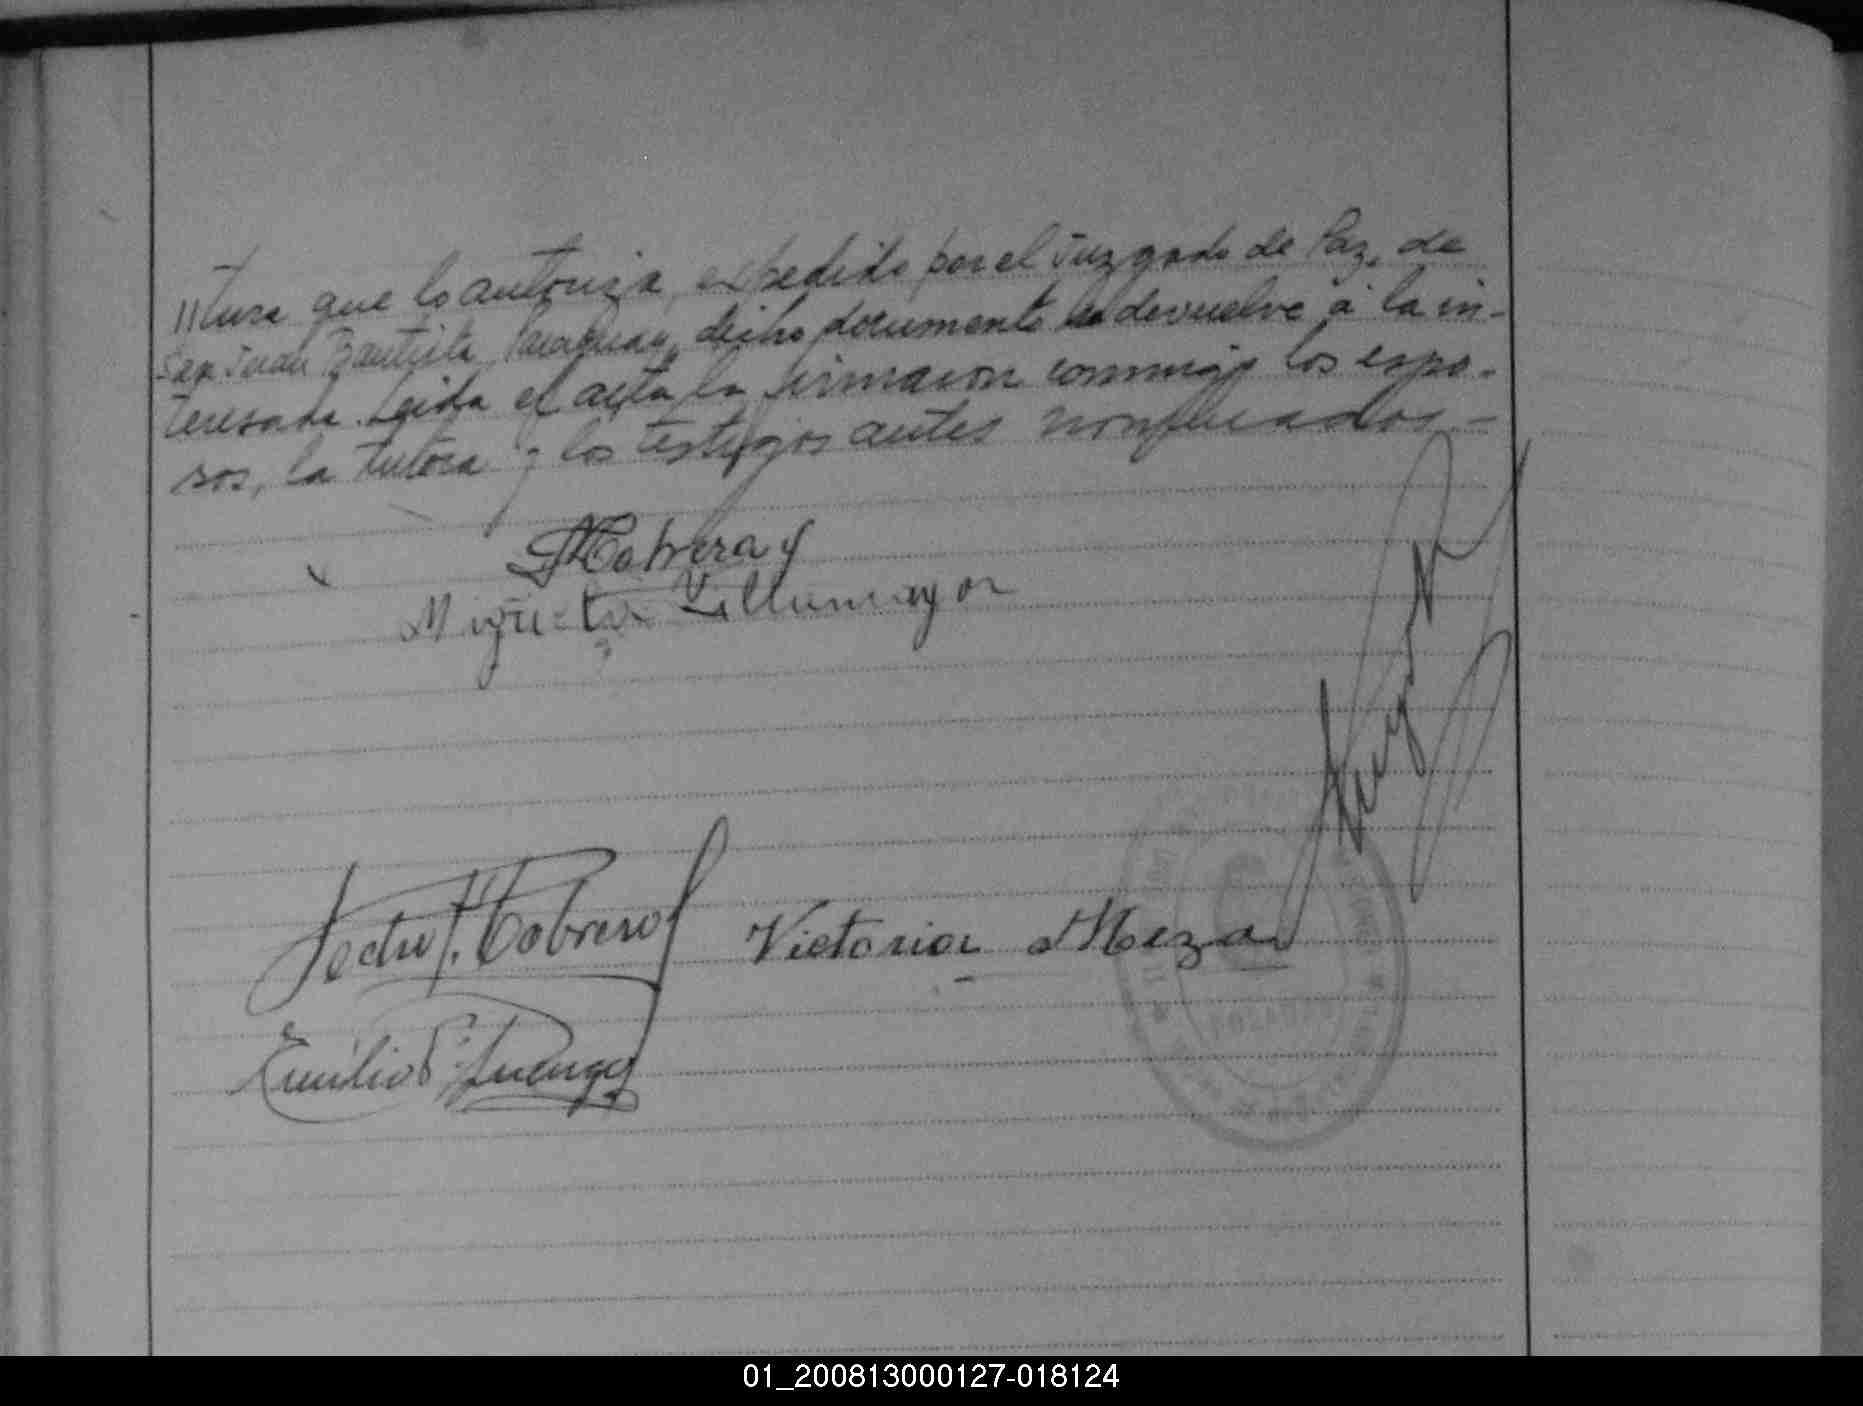 //tura que lo autoriza, expedido por el Juzgado de Paz, de
San Juan Bautista, Paraguay, dicho documento se devuelve á la in-
teresada. Leida el acta la firmaron conmigo los espo-
sos, la tutora y los testigos antes nombrados.-
Cabrera
Villamayor
Pedro Cabrera
Victoria Meza
Emilio
POSADAS
01_200813000127-018124